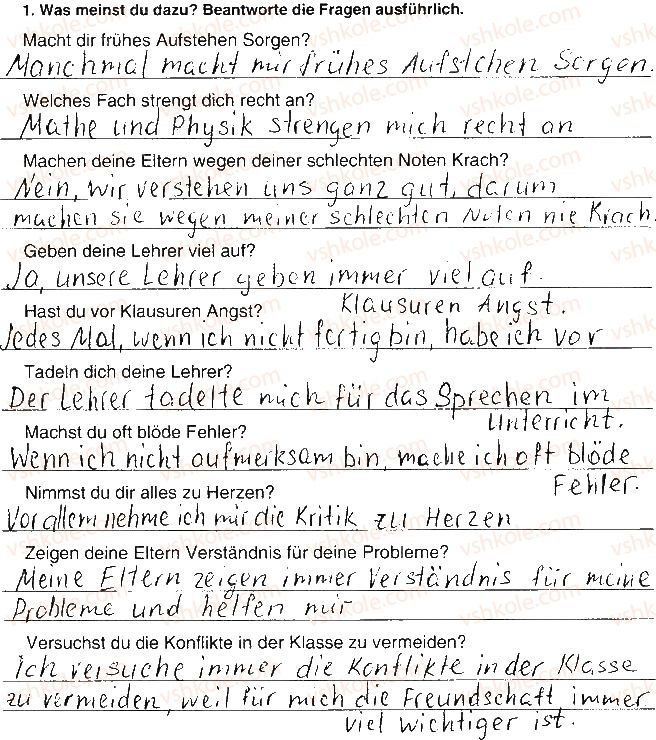 1. Was meinst du dazu? Beantworte die Fragen ausführlich.
Macht dir frühes Aufstehen Sorgen?
Manchmal macht mir frühes Aufstehen Sorgen.
Welches Fach strengt dich recht an?
Mathe und Physik strengen mich recht an
Machen deine Eltern wegen deiner schlechten Noten Krach?
Nein, wir verstehen uns ganz gut, darum
machen sie wegen meiner schlechten Noten nie Krach.
Geben deine Lehrer viel auf?
Ja, unsere Lehrer geben immer viel auf.
Hast du vor Klausuren Angst?
Jedes Mal, wenn ich nicht fertig bin, habe ich vor
Klausuren Angst.
Tadeln dich deine Lehrer?
Der Lehrer tadelte mich für das Sprechen im
Unterricht.
Machst du oft blöde Fehler?
Wenn ich nicht aufmerksam bin, mache ich oft blöde
Fehler.
Nimmst du dir alles zu Herzen?
Vor allem nehme ich mir die Kritik zu Herzen
Zeigen deine Eltern Verständnis für deine Probleme?
Meine Eltern zeigen immer Verständnis für meine
Probleme und helfen mir
Versuchst du die Konflikte in der Klasse zu vermeiden?
Ich versuche immer die Konflikte in der Klasse
zu vermeiden, weil für mich die Freundschaft immer
viel wichtiger ist.
vshkole.com